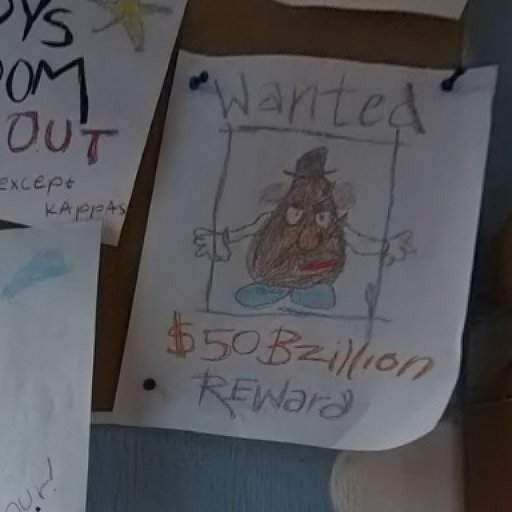 OYS
OOM
OUT
except
KAppAs
Wanted
$50 Bzillion
REWarD
our!